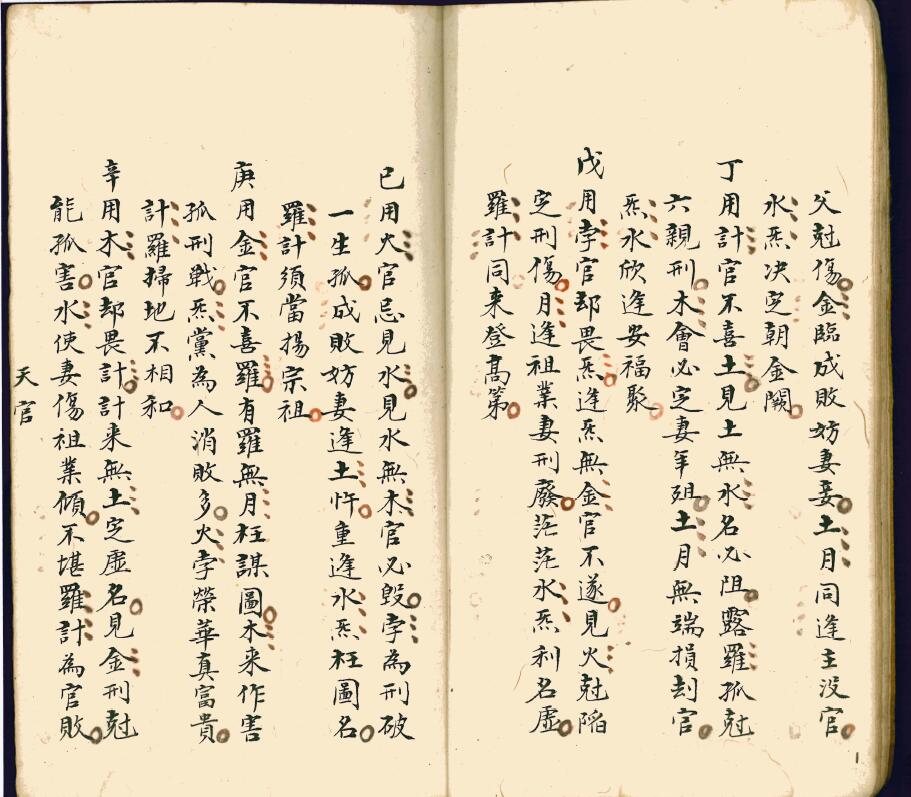 父尅傷金臨成敗妨妻妾土月同逢主没官
水炁决定朝金闕
丁用計官不喜土見土無水名必阻露羅孤尅
六親刑木會必定妻年殂土月無端損刦官
炁水欣逢安福聚
戊用孛官却畏炁逢炁無金官不遂見火尅陷
定刑傷月逢祖業妻刑廢茫茫水炁利名虛
羅計同来登高第
已用火官忌見水見水無木官必毀孛為刑破
一生孤成敗妨妻逢土忤重逢水炁枉圖名
羅計須當揚宗祖
庚用金官不喜羅有羅無月枉謀圖木来作害
孤刑戰炁黨為人消敗多火孛榮華真富貴
計羅掃地不相和
辛用木官却畏計計来無土定虛名見金刑尅
能孤害水使妻傷祖業傾不堪羅計為官敗
天官
1